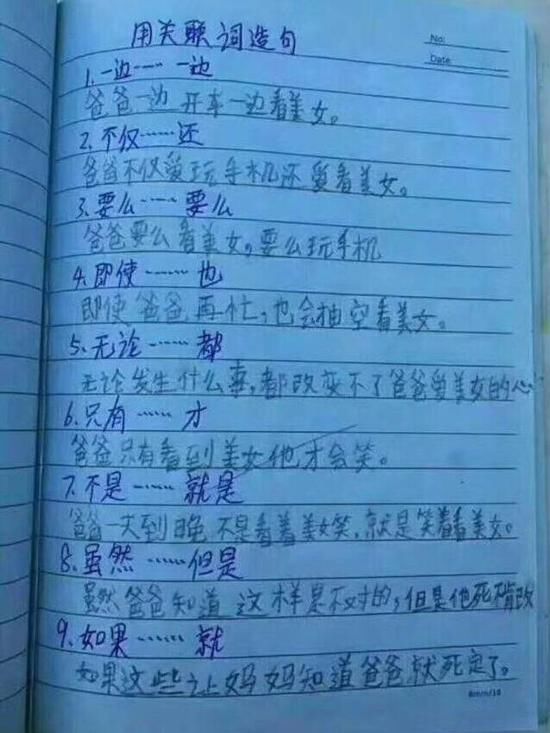 用关联词造句
No:
Date
1.一边…… 一边
爸爸一边 开车一边看美女。
2.不仅……还
爸爸不仅爱玩手机还爱看美女。
3.要么……要么
爸爸要么看美女,要么玩手机
4.即使……也
即使爸爸再忙,也会抽空看美女。
5.无论……都
无论发生什么事,都改变不了爸爸爱美女的心
6.只有……才
爸爸只有看到美女他才会笑。
7.不是……就是
爸爸一天到晚不是看着美女笑,就是笑着看美女。
8.虽然……但是
虽然爸爸知道这样是不对的,但是他死不肯改
9.如果……就
如果这些让妈妈知道爸爸就死定了。